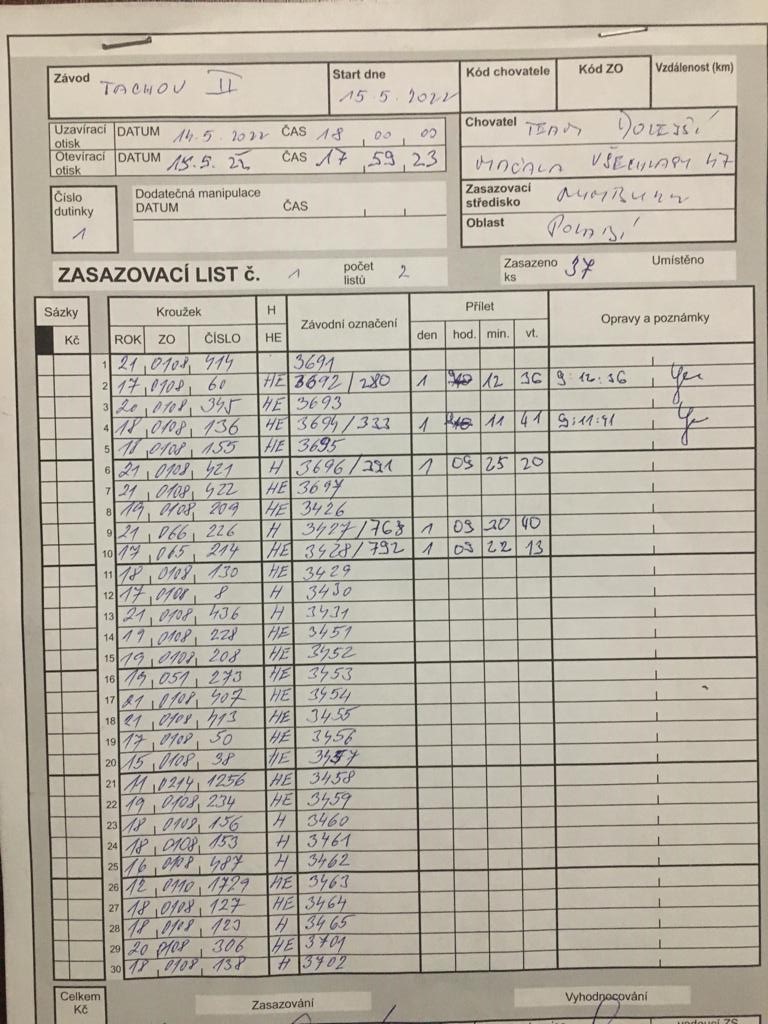 Závod TACHOV II Start dne 15.5.2022 Kód chovatele Kód ZO Vzdálenost (km)
Uzavírací otisk DATUM 14.5.2022 ČAS 18 00 00 Chovatel TEAM DOLEJŠÍ
Otevírací otisk DATUM 15.5.22 ČAS 17 59 23 MAČALA VŠECHLAPY 47
Číslo dutinky 1 Dodatečná manipulace DATUM ČAS Zasazovací středisko NYMBURK
Oblast POLABÍ
ZASAZOVACÍ LIST č. 1 počet listů 2 Zasazeno ks 37 Umístěno
Sázky Kroužek H Závodní označení Přílet Opravy a poznámky
Kč ROK ZO ČÍSLO HE den hod. min. vt.
1 21 0108 414 3691
2 17 0108 60 HE 3692/280 1 12 36 9:12:36
3 20 0108 345 HE 3693
4 18 0108 136 HE 3694/333 1 11 41 9:11:41
5 18 0108 155 HE 3695
6 21 0108 421 H 3696/291 1 09 25 20
7 21 0108 422 HE 3697
8 19 0108 209 HE 3426
9 21 066 226 H 3427/763 1 09 20 40
10 17 065 214 HE 3428/792 1 09 22 13
11 18 0108 130 HE 3429
12 17 0108 8 H 3430
13 21 0108 436 H 3431
14 19 0108 228 HE 3451
15 19 0108 208 HE 3452
16 19 051 273 HE 3453
17 21 0108 407 HE 3454
18 21 0108 413 HE 3455
19 17 0108 50 HE 3456
20 15 0108 38 HE 3457
21 11 0214 1256 HE 3458
22 19 0108 234 HE 3459
23 18 0108 156 H 3460
24 18 0108 153 H 3461
25 16 0108 487 H 3462
26 12 0110 1729 HE 3463
27 18 0108 127 HE 3464
28 18 0108 123 H 3465
29 20 0108 306 HE 3701
30 18 0108 138 H 3702
Celkem Kč Zasazování Vyhodnocování
vedoucí ZS